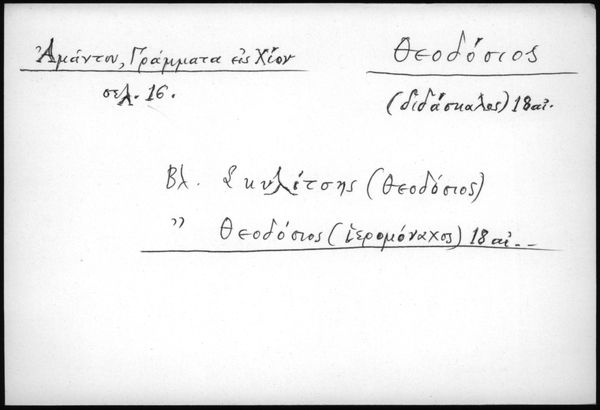 Ἀμάντου, Γράμματα εἰς Χίον
σελ. 16.
Θεοδόσιος
(διδάσκαλος) 18 αἰ.
Βλ. Σκυλίτσης (Θεοδόσιος)
" Θεοδόσιος (ἱερομόναχος) 18 αἰ.